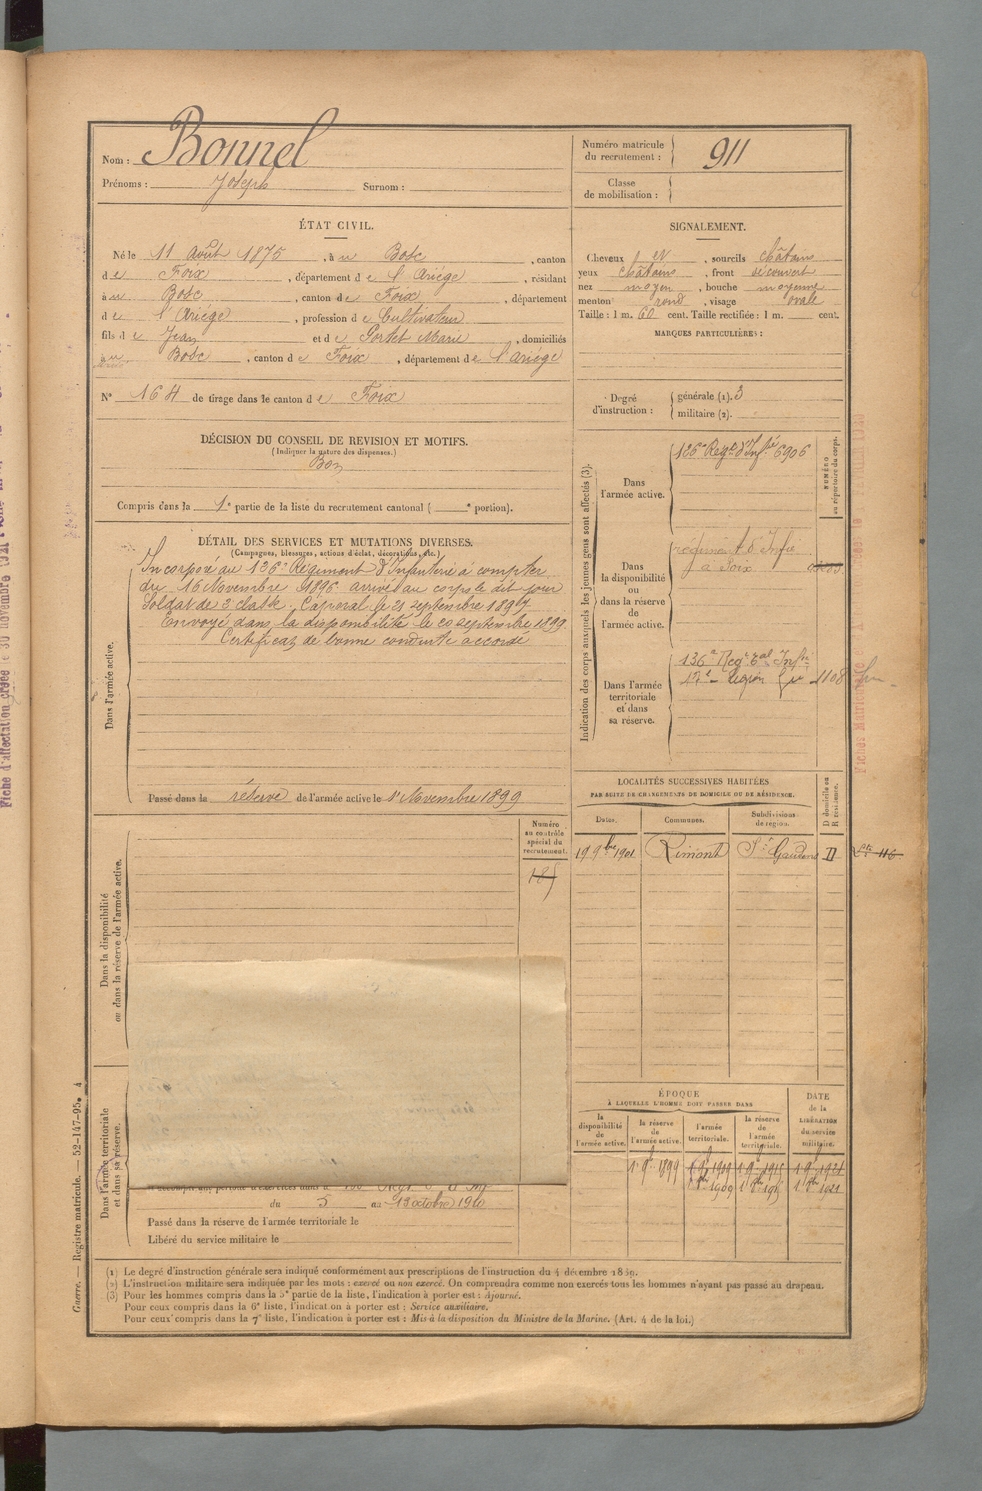 Nom : Bonnel
Prénoms : Joseph Surnom :
Numéro matricule du recrutement : 911
Classe de mobilisation :
ÉTAT CIVIL.
Né le 11 Août 1875, à u Bosc, canton
d e Foix, département d e l'Ariège, résidant
à u Bosc, canton d e Foix, département
d e l'Ariège, profession d e Cultivateur
fils d e Jean et d e Portet Marie, domiciliés
à u Bosc, canton d e Foix, département d e l'Ariège
N° 164 de tirage dans le canton d e Foix
DÉCISION DU CONSEIL DE REVISION ET MOTIFS.
(Indiquer la nature des dispenses.)
Bon
Compris dans la 1e partie de la liste du recrutement cantonal ( e portion).
DÉTAIL DES SERVICES ET MUTATIONS DIVERSES.
(Campagnes, blessures, actions d'éclat, décorations, etc.)
Dans l'armée active.
Incorporé au 126e Régiment d'Infanterie à compter
du 16 Novembre 1896 arrivé au corps le dit jour
Soldat de 2e classe. Caporal le 21 septembre 1897
Envoyé dans la disponibilité le 20 septembre 1899.
Certificat de bonne conduite accordé
Passé dans la réserve de l'armée active le 1er Novembre 1899
SIGNALEMENT.
Cheveux et, sourcils châtains
yeux châtains, front découvert
nez moyen, bouche moyenne
menton rond, visage ovale
Taille : 1 m. 60 cent. Taille rectifiée : 1 m. cent.
MARQUES PARTICULIÈRES :
Degré d'instruction : générale (1). 3
militaire (2).
Indication des corps auxquels les jeunes gens sont affectés (3).
NUMÉRO au répertoire du corps.
Dans l'armée active.
126e Régt d'Infie 6906
Dans la disponibilité ou dans la réserve de l'armée active.
régiment d'Infie
à Foix
Dans l'armée territoriale et dans sa réserve.
136e Regt Tal Infie
17e Région 1108
LOCALITÉS SUCCESSIVES HABITÉES
PAR SUITE DE CHANGEMENTS DE DOMICILE OU DE RÉSIDENCE.
Dates. Communes. Subdivisions de région. D domicile ou R résidence.
19 9bre 1901 Rimont St Gaudens D
Numéro au contrôle spécial du recrutement.
Dans la disponibilité ou dans la réserve de l'armée active.
Dans l'armée territoriale et dans sa réserve.
du 5 au 13 octobre 1910
Passé dans la réserve de l'armée territoriale le
Libéré du service militaire le
ÉPOQUE
À LAQUELLE L'HOMME DOIT PASSER DANS
la disponibilité de l'armée active.
la réserve de l'armée active.
l'armée territoriale.
la réserve de l'armée territoriale.
DATE de la LIBÉRATION du service militaire.
1 9bre 1899
(1) Le degré d'instruction générale sera indiqué conformément aux prescriptions de l'instruction du 4 décembre 1889.
(2) L'instruction militaire sera indiquée par les mots : exercé ou non exercé. On comprendra comme non exercés tous les hommes n'ayant pas passé au drapeau.
(3) Pour les hommes compris dans la 5e partie de la liste, l'indication à porter est : Ajourné.
Pour ceux compris dans la 6e liste, l'indication à porter est : Service auxiliaire.
Pour ceux compris dans la 7e liste, l'indication à porter est : Mis à la disposition du Ministre de la Marine. (Art. 4 de la loi.)
Guerre. — Registre matricule. — 52-147-95. 4